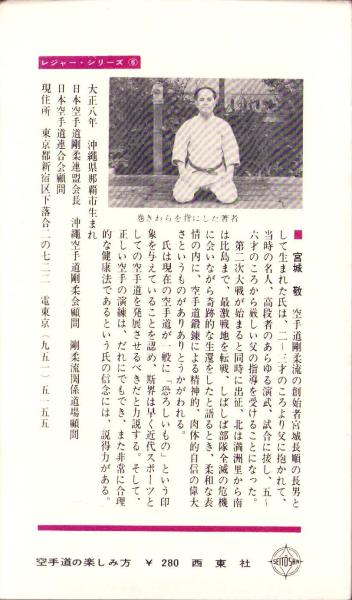 レジャー・シリーズ⑥
巻きわらを背にした著者
大正八年　沖縄県那覇市生まれ
日本空手道剛柔連盟会長　沖縄空手道剛柔会顧問　剛柔流関係道場顧問
日本空手道連合会顧問
現住所　東京都新宿区下落合二の七二二　電東京（九五一）五一五五
宮城　敬　空手道剛柔流の創始者宮城長順の長男と
して生まれた氏は、二ー三才のころより父に抱かれて、
当時の名人、高段者のあらゆる演武、試合に接し、五ー
六才のころから厳しい父の指導を受けることになった。
第二次大戦が始まると同時に出征、北は満洲里から南
は比島まで、最激戦地を転戦、しばしば部隊全滅の危機
に会いながら奇跡的な生還をしたと語るとき、柔和な表
情の内に、空手道鍛錬による精神的、肉体的自信の偉大
さというものがありありとうかがわれる。
氏は現在の空手道が、一般に「恐ろしいもの」という印
象を与えていることを認め、斯界は早く近代スポーツと
しての空手道を発展させるべきだと力説する。そして、
正しい空手の演練は、だれにもでき、また非常に合理
的な健康法であるという氏の信念には、説得力がある。
空手道の楽しみ方　¥ 280　西東社
SEITOSHA